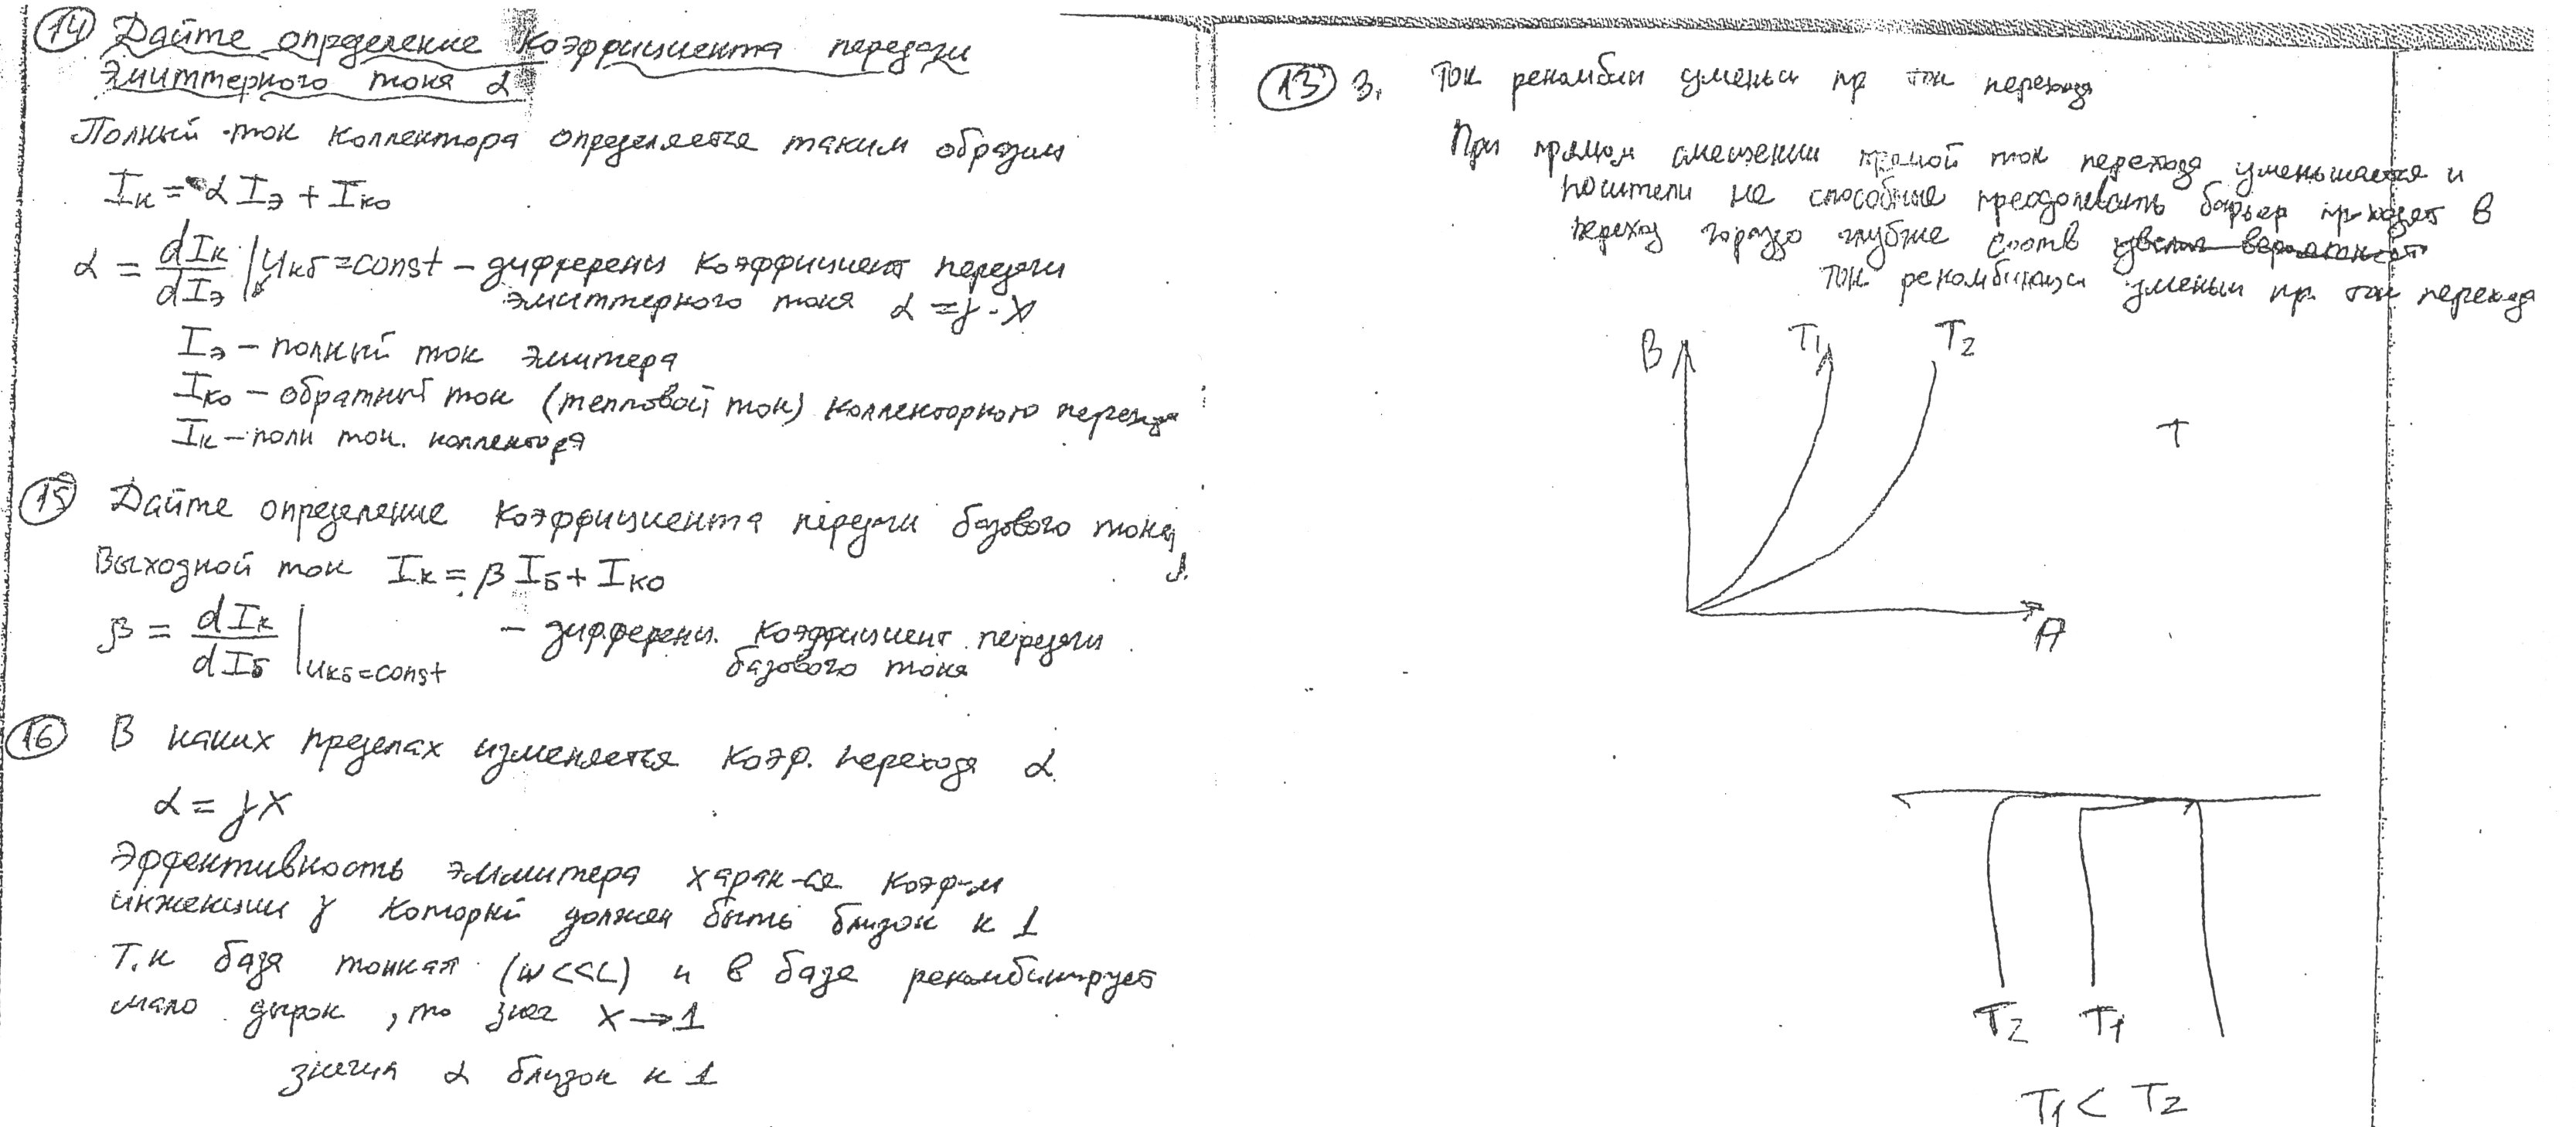 14 Дайте определение коэффициента передачи
эмиттерного тока α
Полный ток коллектора определяется таким образом
Iк = α Iэ + Iко
α = dIк / dIэ | Uкб = const – дифференц коэффициент передачи
эмиттерного тока α = γ · χ
Iэ – полный ток эмитера
Iко – обратный ток (тепловой ток) коллекторного перехода
Iк – полн ток. коллектора
15 Дайте определение коэффициента передачи базового тока
Выходной ток Iк = β Iб + Iко
β = dIк / dIб | Uкб = const – дифференц. коэффициент передачи
базового тока
16 В каких пределах изменяется коэф. перехода α
α = γχ
Эффективность эммитера харак-ся коэф-м
инжекции γ который должен быть близок к 1
Т.к база тонкая (w<<L) и в базе рекомбинирует
мало дырок, то знач χ → 1
значит α близок к 1
13 3. Ток рекомбин уменьш пр ток перехода
При прямом смещении прямой ток перехода уменьшается и
носители не способные преодолевать барьер приходят в
переход гораздо глубже соотв увелич вероятност
ток рекомбинации уменьш пр. ток перехода
В T1 T2
T
A
T2 T1
T1 < T2